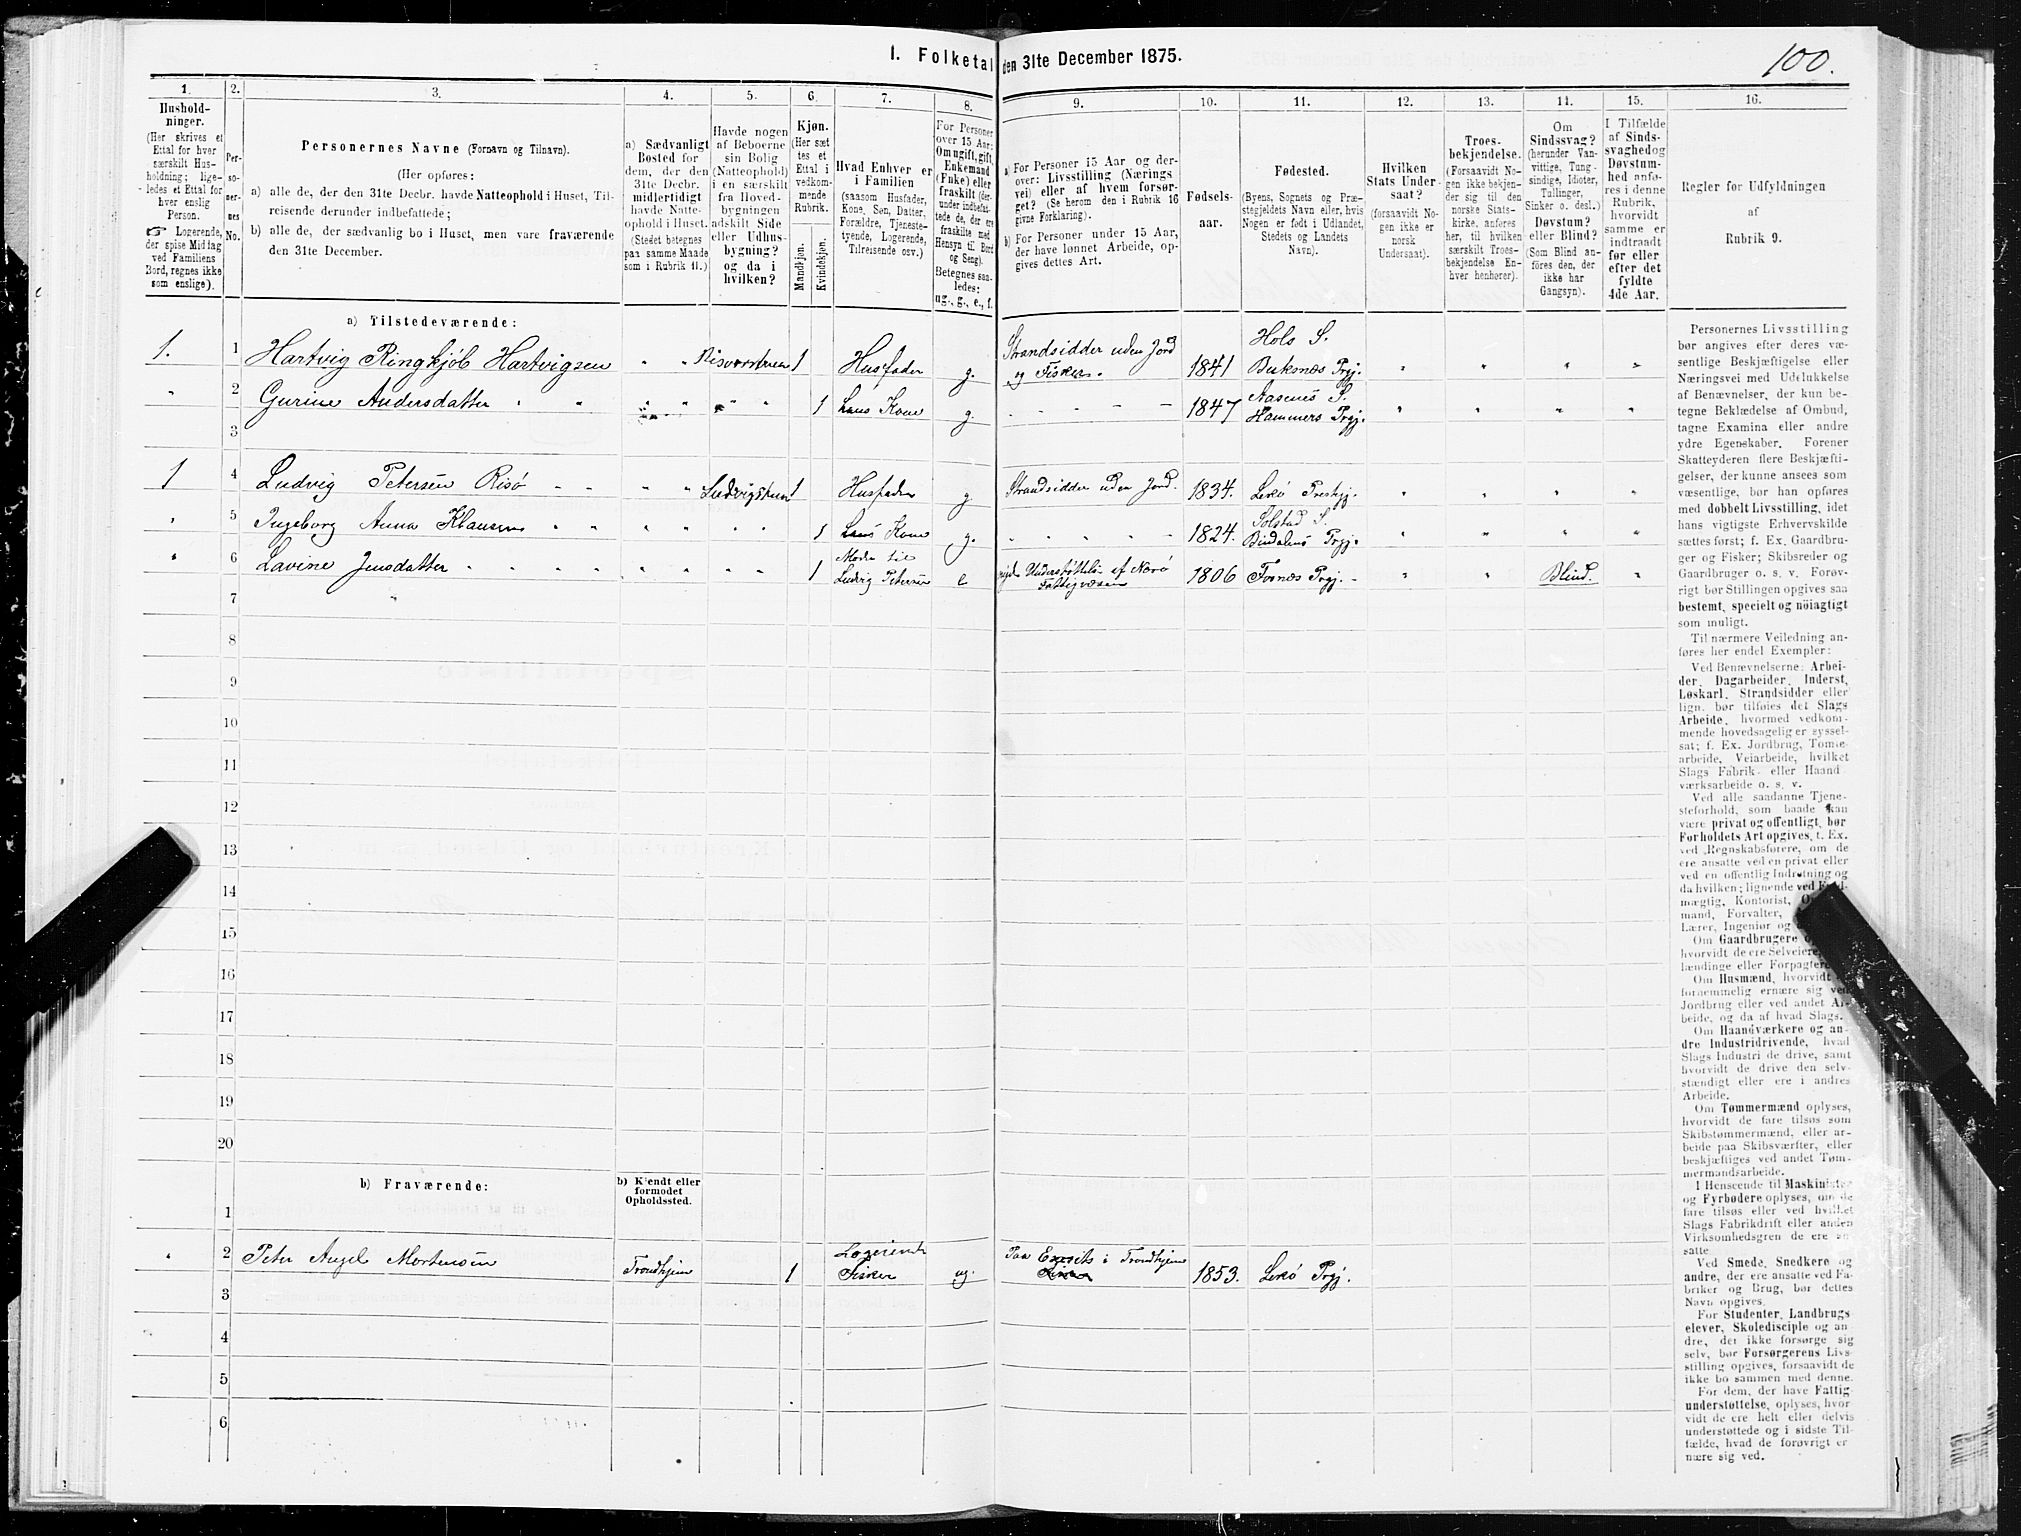 1. Folketal den 31te December 1875.
100.
1.
2.
3.
4.
5.
6.
7.
8.
9.
10.
11.
12.
13.
14.
15.
16.
Hushold-
ninger.
(Her skrives et
Ettal for hver
særskilt Hus-
holdning; lige-
ledes et Ettal for
hver enslig
Person.
☞ Logerende,
der spise Middag
ved Familiens
Bord, regnes ikke
som enslige).
Per-
so-
ner-
nes
No.
Personernes Navne (Fornavn og Tilnavn).
(Her opføres:
a) alle de, der den 31te Decbr. havde Natteophold i Huset, Til-
reisende derunder indbefattede;
b) alle de, der sædvanlig bo i Huset, men vare fraværende
den 31te December.
a) Sædvanligt
Bosted for
dem, der den
31te Decbr.
midlertidigt
havde Natte-
ophold i Huset.
(Stedet betegnes
paa samme Maade
som i Rubrik 11.)
Havde nogen
af Beboerne
sin Bolig
(Natteophold)
i en særskilt
fra Hoved-
bygningen
adskilt Side
eller Udhus-
bygning?
og da i
hvilken?
Kjøn.
(Her sæt
tes et
Ettal i
vedkom-
mende
Rubrik.
Mandkjøn.
Kvindekjøn.
Hvad Enhver er
i Familien
(saasom Husfader,
Kone, Søn, Datter,
Forældre, Tjeneste-
tyende, Logerende,
Tilreisende osv.)
For Personer
over 15 Aar:
Om ugift, gift,
Enkemand
(Enke) eller
fraskilt (der-
under indbefat-
tede de, der ere
fraskilte med
Hensyn til Bord
og Seng).
Betegnes saa-
ledes:
ug., g., e., f.
a) For Personer 15 Aar og der-
over: Livsstilling (Nærings
vei) eller af hvem forsør-
get? (Se herom den i Rubrik 16
givne Forklaring).
b) For Personer under 15 Aar,
der have lønnet Arbeide, op-
gives dettes Art.
Fødsels-
aar.
Fødested.
(Byens, Sognets og Præ-
stegjeldets Navn eller, hvis
Nogen er født i Udlandet,
Stedets og Landets
Navn).
Hvilken
Stats Under-
saat?
(forsaavidt No-
gen ikke er
norsk
Undersaat).
Troes-
bekjendelse.
(Forsaavidt No-
gen ikke bekjen-
der sig til den
norske Stats-
kirke, anføres
her, til hvilken
særskilt Troes-
bekjendelse En-
hver henhører).
Om
Sindssvag?
(herunder Van-
vittige, Tung-
sindige, Idioter,
Tullinger,
Sinker o. desl.)
Døvstum?
eller Blind?
(Som Blind an-
føres den, der
ikke har
Gangsyn).
I Tilfælde
af Sinds-
svaghed og
Døvstum-
hed anfø-
res i denne
Rubrik,
hvorvidt
samme er
indtraadt
før eller
efter det
fyldte
4de Aar.
Regler for Udfyldningen
af
Rubrik 9.
a) Tilstedeværende:
1. 1 Hartvig Ringkjøb Hartvigsen " " 1 Husfader g. Strandsidder uden Jord og Fisker. 1841 Hols S. Prgj. " " " "
" 2 Gurine Andersdatter " " " " " " 1 hans Kone g. 1847 Aasenes S. Hammers Prgj. " " " "
3
1 4 Ludvig Petersen Risø " " " " Ludvigstuen 1 Husfader g Strandsidder uden Jord. 1834. Lekø Prestgj. " " " "
" 5 Ingeborg Anna Klausen " " " " " " 1 hans Kone g. " " " " 1824. Solstad S. Bindalens Prgj. " " " "
" 6 Lavine Jensdatter " " " " " " " " 1 Moder til Ludvig Petersen e Understøttelse af Nærø Fattigvæsen 1806 Prgj. " " " Blind. "
7
8
9
10
11
12
13
14
15
16
17
18
19
20
b) Fraværende:
b) Kjendt eller
formodet
Opholdssted.
1
" 2 Peter Angel Mortensen Trondhjem 1 Logerende Fisker ug. Paa Exersits i Trondhjem 1853. Lekø Prgj.
3
4
5
6
Personernes Livsstilling
bør angives efter deres væ-
sentlige Beskjæftigelse eller
Næringsvei med Udelukkelse
af Benævnelser, der kun be-
tegne Beklædelse af Ombud,
tagne Examina eller andre
ydre Egenskaber. Forener
Skatteyderen flere Beskjæfti-
gelser, der kunne ansees som
væsentlige, bør han opføres
med dobbelt Livsstilling, idet
hans vigtigste Erhvervskilde
sættes først; f. Ex. Gaardbru-
ger og Fisker; Skibsreder og
Gaardbruger o. s. v. Forøv-
rigt bør Stillingen opgives saa
bestemt, specielt og nøiagtigt
som muligt.
Til nærmere Veiledning an-
føres her endel Exempler:
Ved Benævnelserne: Arbei-
der, Dagarbeider, Inderst,
Løskarl, Strandsidder eller
lign. bør tilføies det Slags
Arbeide, hvormed vedkom-
mende hovedsagelig er syssel-
sat; f. Ex. Jordbrug, Tomte-
arbeide, Veiarbeide, hvilket
Slags Fabrik- eller Haand-
værksarbeide o. s. v.
Ved alle saadanne Tjene-
steforhold, som baade kan
være privat og offentligt, bør
Forholdets Art opgives, f. Ex.
ved Regnskabsførere, om de
ere ansatte ved en privat eller
ved en offentlig Indretning og
da hvilken; lignende ved
mægtig, Kontorist,
mand, Forvalter,
Lærer, Ingeniør og
Om Gaardbrugere
hvorvidt de ere Selveiere,
lændinge eller Forpagtere
Om Husmænd, hvorvidt
fornemmelig ernære sig ved
Jordbrug eller ved andet Ar-
beide, og da af hvad Slags.
Om Haandværkere og an-
dre Industridrivende, hvad
Slags Industri de drive, samt
hvorvidt de drive den selv-
stændigt eller ere i andres
Arbeide.
Om Tømmermænd oplyses,
hvorvidt de fare tilsøs som
Skibstømmermænd, eller ar-
beide paa Skibsværfter, eller
beskjæftiges ved andet Tøm-
mermandsarbeide.
I Henseende til Maskinister
og Fyrbødere oplyses, om de
fare tilsøs eller ved hvilket
Slags Fabrikdrift eller anden
Virksomhedsgren de ere an-
satte
Ved Smede, Snedkere og
andre, der ere ansatte ved Fa-
briker og Brug, bør dettes
Navn opgives.
For Studenter, Landbrugs
elever, Skoledisciple og an-
dre, der ikke forsørge sig
selv, bør Forsørgerens Livs-
stilling opgives, forsaavidt de
ikke bo sammen med denne.
For dem, der have Fattig-
understøttelse, oplyses, hvor-
vidt de ere helt eller delvis
understøttede og i sidste Til-
fælde, hvad de forøvrigt er-
nære sig ved.